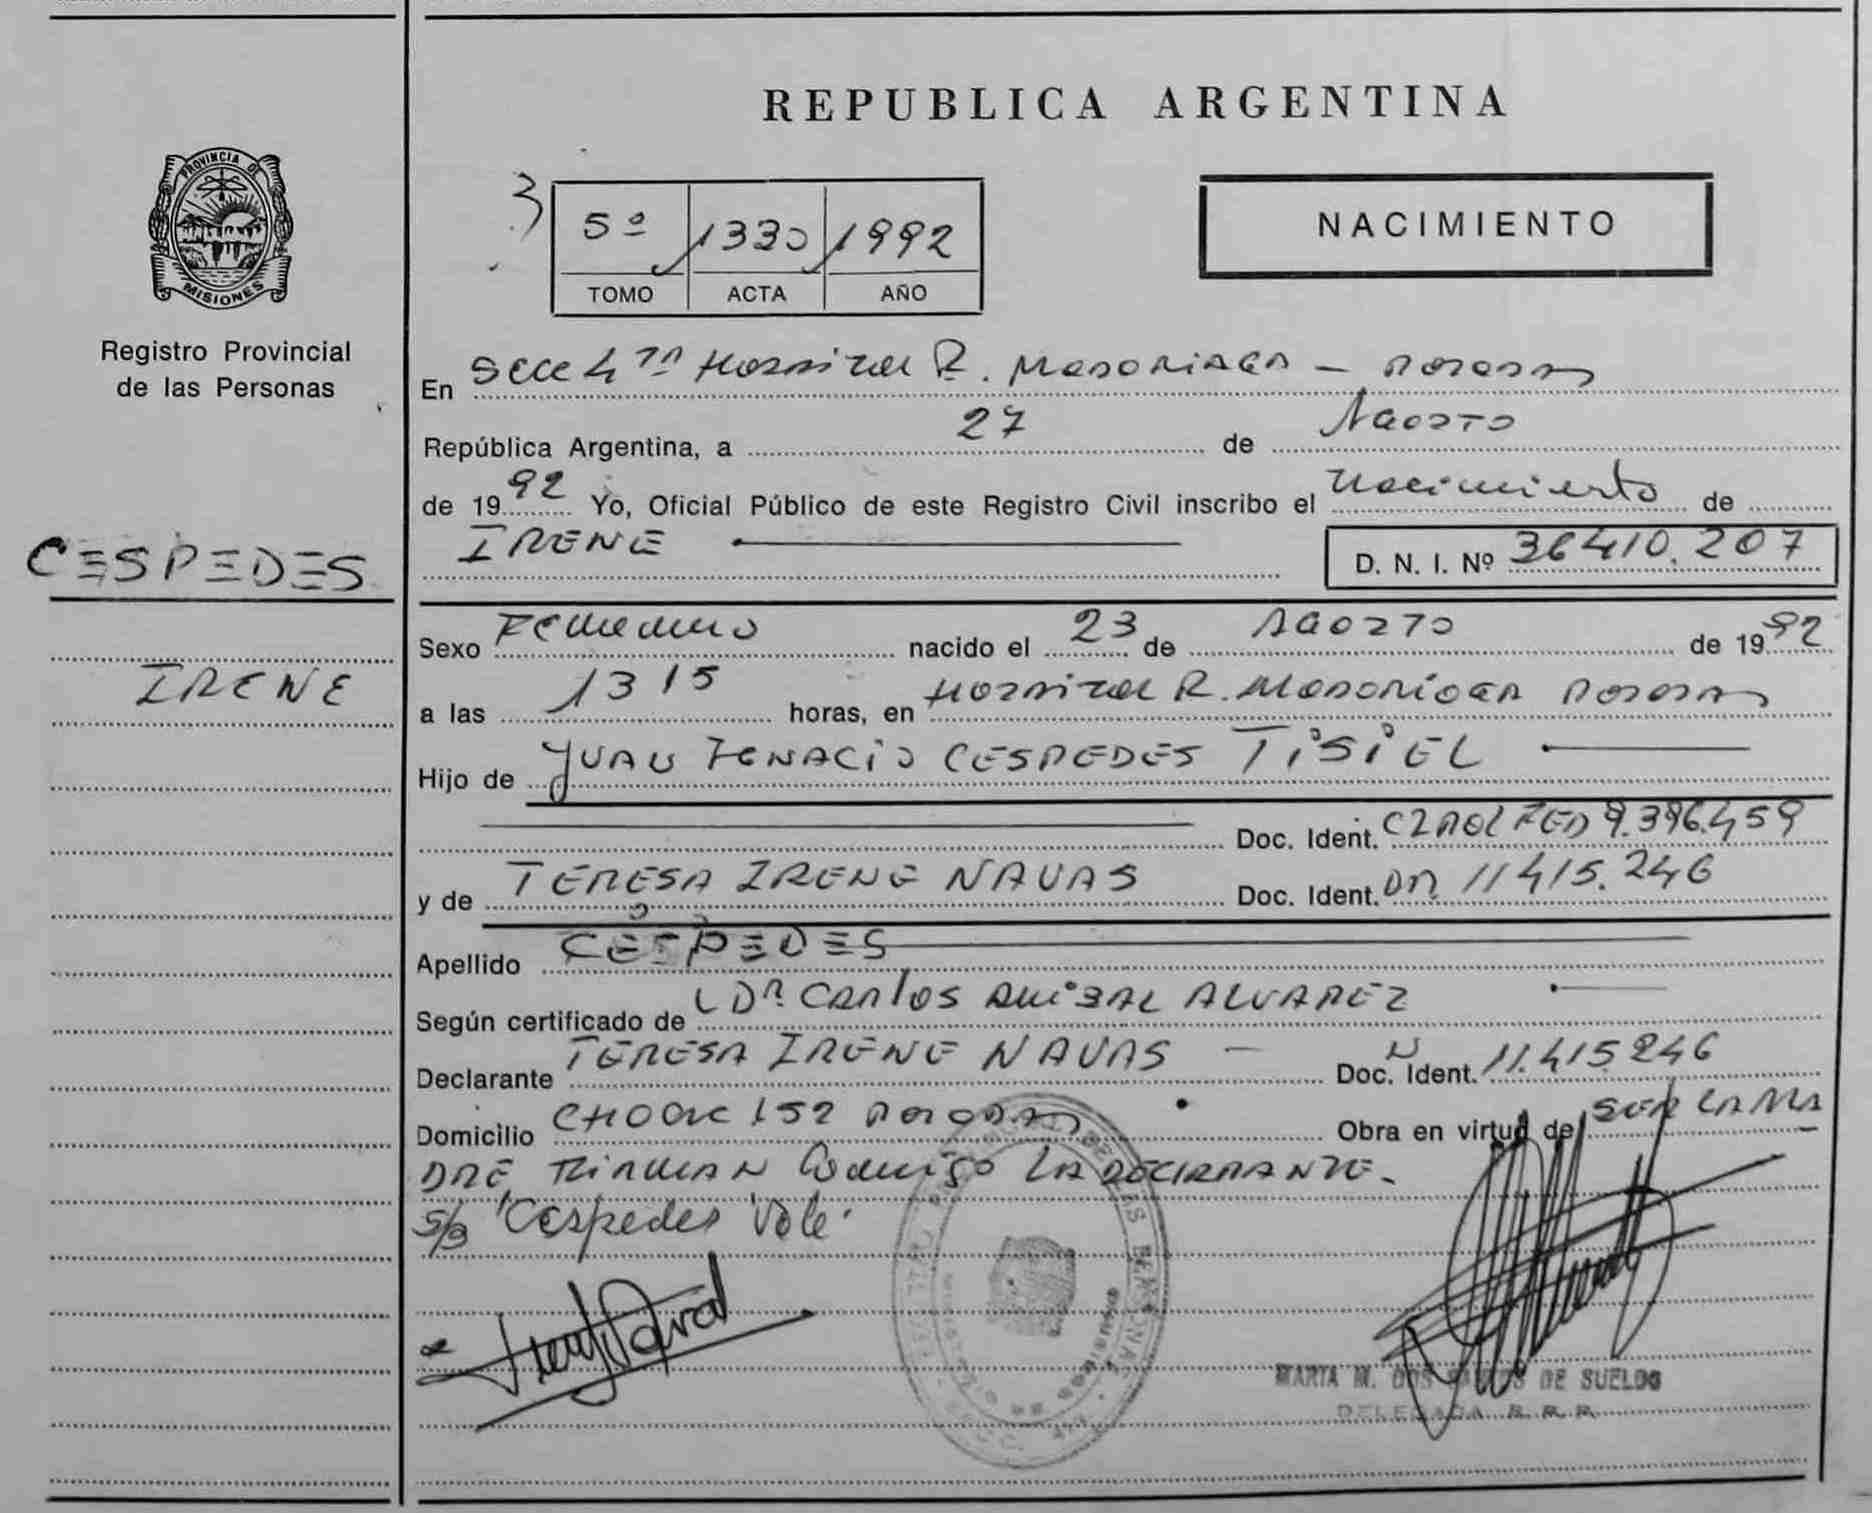 REPUBLICA ARGENTINA
PROVINCIA DE
MISIONES
Registro Provincial
de las Personas
3)
5º 1330 1992
TOMO ACTA AÑO
NACIMIENTO
En Secc 4ta Hospital R. Madariaga - Posadas
República Argentina, a 27 de Agosto
de 1992 Yo, Oficial Público de este Registro Civil inscribo el Nacimiento de
IRENE D. N. I. Nº 36410.207
CESPEDES
IRENE
Sexo Femenino nacido el 23 de Agosto de 1992
a las 13 15 horas, en Hospital R. Madariaga Posadas
Hijo de JUAN IGNACIO CESPEDES TISIEL
Doc. Ident. 9.396.459
y de TERESA IRENE NAVAS Doc. Ident. 11415.246
Apellido CESPEDES
Según certificado de Dr. CARLOS ANIBAL ALVAREZ
Declarante TERESA IRENE NAVAS - Doc. Ident. 11.415.246
Domicilio 152 Posadas Obra en virtud de SER LA MA
DRE FIRMAN Conmigo LA DECLARANTE.-
S/B "Cespedes" Vale.
MARTA M. DOS SANTOS DE SUELDO
DELEGADA R.P.P.